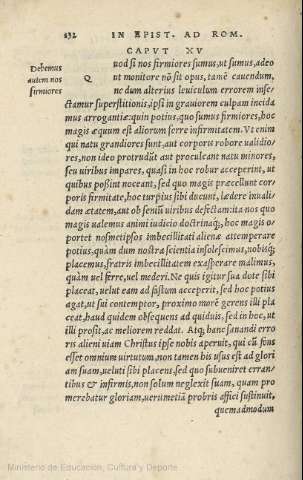 232 IN EPIST. AD ROM.
CAPVT XV
Debemus
autem nos
firmiores
Quod si nos firmiores sumus, ut sumus, adeo
ut monitore nõ sit opus, tamẽ cauendum,
ne dum alterius leuiculum errorem inse⸗
ctamur superstitionis, ipsi in grauiorem culpam incida
mus arrogantiæ: quin potius, quo sumus firmiores, hoc
magis æquum est aliorum ferre infirmitatem. Vt enim
qui natu grandiores sunt, aut corporis robore ualidio⸗
res, non ideo protrudũt aut proculcant natu minores,
seu uiribus impares, quasi in hoc robur acceperint, ut
quibus possint noceant, sed quo magis præcellunt cor⸗
poris firmitate, hoc turpius sibi ducunt, lædere inuali⸗
dam ætatem, aut ob seniũ uiribus defectam: ita nos quo
magis ualemus animi iudicio doctrinaq́;, hoc magis o⸗
portet nosmetipsos imbecillitati alienæ attemperare
potius, quàm dum nostra scientia insolescimus, nobisq́;
placemus, fratris imbecillitatem exasperare malimus,
quàm uel ferre, uel mederi. Ne quis igitur sua dote sibi
placeat, uelut eam ad fastum acceperit, sed hoc potius
agat, ut sui contemptor, proximo morẽ gerens illi pla
ceat, haud quidem obsequens ad quiduis, sed in hoc, ut
illi prosit, ac meliorem reddat. Atq; hanc sanandi erro
ris alieni uiam Christus ipse nobis aperuit, qui cũ fons
esset omnium uirtutum, non tamen his usus est ad glori
am suam, ueluti sibi placens, sed quo subueniret erran⸗
tibus & infirmis, non solum neglexit suam, quam pro
merebatur gloriam, uerumetiã probris affici sustinuit,
quemadmodum
Ministerio de Educación, Cultura y Deporte